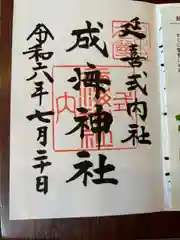 延喜式内社
成海神社
令和六年七月二十日